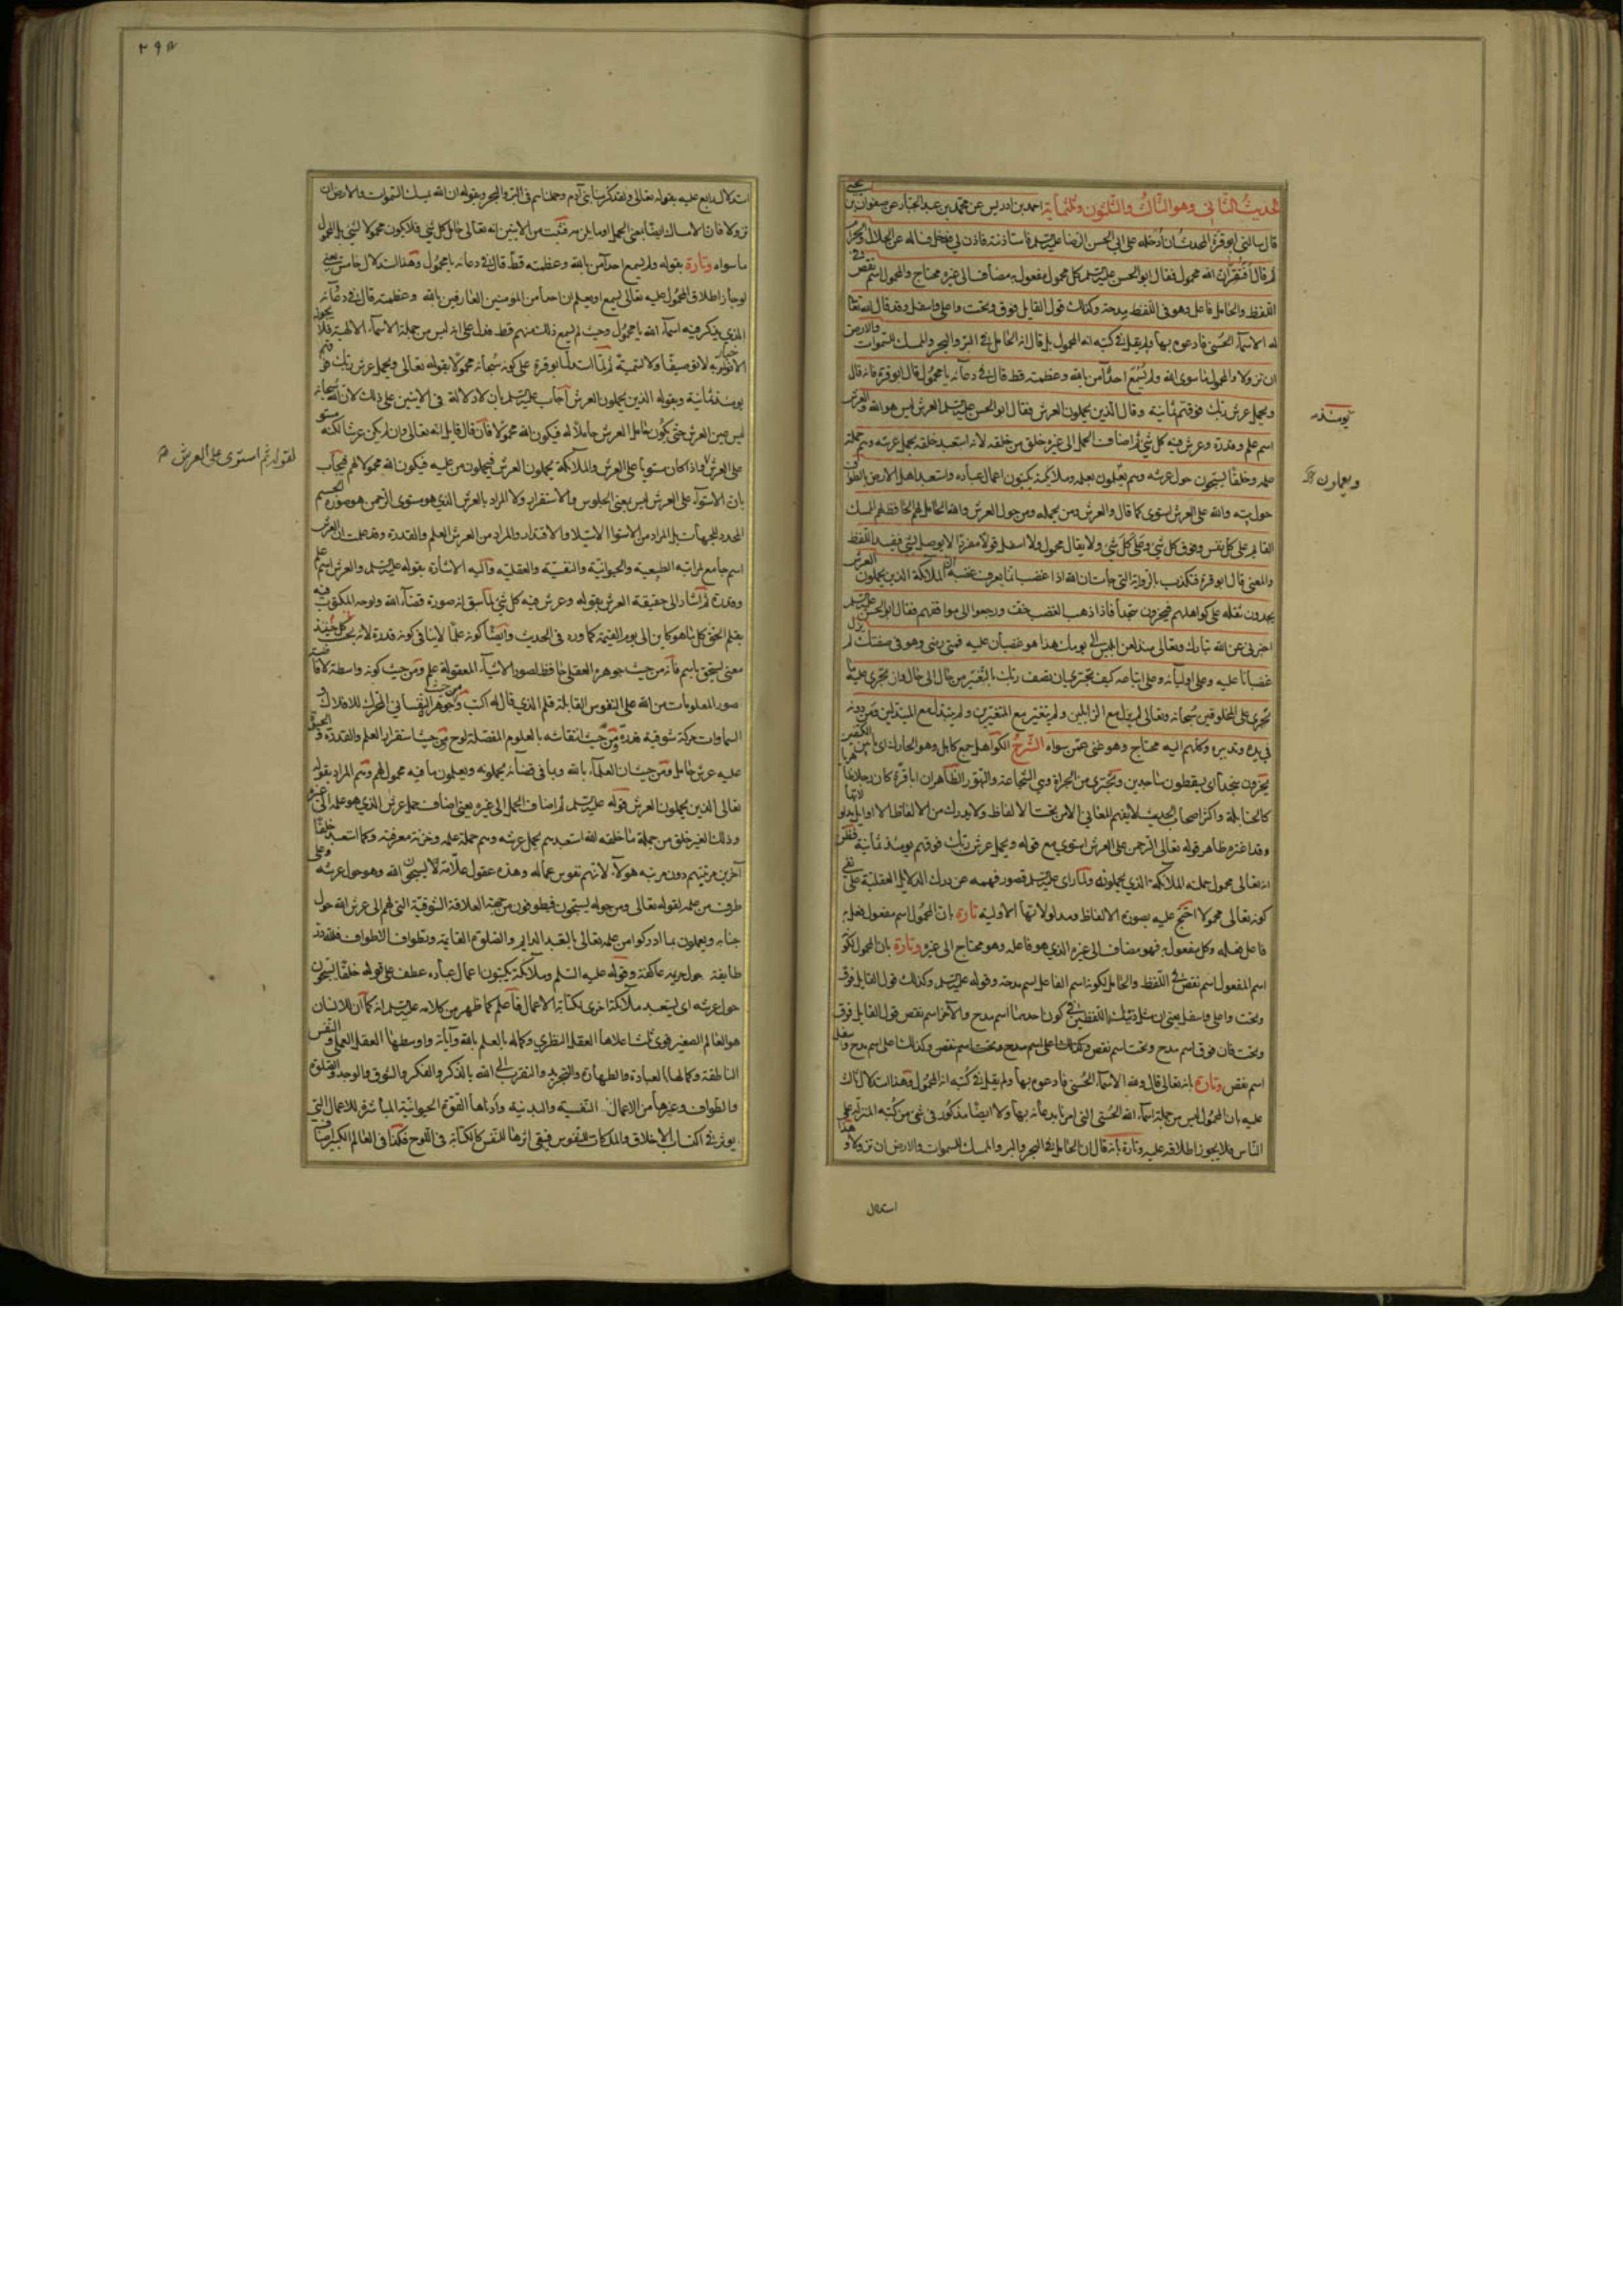 الحديث الثاني وهو الثالث والثلثون وثلثمائة احمد بن ادريس عن محمد بن عبد الجبار عن صفوان بن يحيى
قال سالنى ابو قرة المحدث ان ادخله على ابى الحسن الرضا عليه السلم فاستاذنته فاذن لى فدخل فساله عن الحلال والحرام
ثم قال افتقر ان الله محمول فقال ابو الحسن عليه السلم كل محمول مفعول به مضاف الى غيره محتاج والمحمول اسم نقص فى
اللفظ والحامل فاعل وهو فى اللفظ مدحة وكذلك قول القايل فوق وتحت واعلى واسفل وقد قال الله تعالى
له الاسماء الحسنى فادعوه بها ولم يقل فى كتبه انه المحمول بل قال انه الحامل فى البر والبحر والممسك للسموات والارض
ان تزولا والمحمول ما سوى الله ولم يسمع احد آمن بالله وعظمته قط قال فى دعائه يا محمول قال ابو قرة فانه قال
ويحمل عرش ربك فوقهم ثمانية وقال الذين يحملون العرش فقال ابو الحسن عليه السلم العرش ليس هو الله والعرش
اسم علم وقدرة وعرش فيه كل شئ ثم اضاف الحمل الى غيره خلق من خلقه لانه استعبد خلقه بحمل عرشه وهم حملة
علمه وخلقا يسبحون حول عرشه وهم يعملون بعلمه وملائكة يكتبون اعمال عباده واستعبد اهل الارض بالطواف
حول بيته والله على العرش استوى كما قال والعرش ومن يحمله ومن حول العرش والله الحامل لهم الحافظ لهم الممسك
القايم على كل نفس وفوق كل شئ وعلى كل شئ ولا يقال محمول ولا اسفل قولا مفردا لا يوصل بشئ فيفسد اللفظ
والمعنى قال ابو قرة فتكذب بالرواية التى جاءت ان الله اذا غضب انما يعرف غضبه ان الملائكة الذين يحملون العرش
يجدون ثقله على كواهلهم فيخرون سجدا فاذا ذهب الغضب خف ورجعوا الى مواقفهم فقال ابو الحسن عليه السلم
اخبرنى عن الله تبارك وتعالى منذ لعن ابليس الى يومك هذا هو غضبان عليه فمتى رضى وهو فى صفتك لم يزل
غضبانا عليه وعلى اوليائه وعلى اتباعه كيف تجترى ان تصف ربك بالتغير من حال الى حال وانه يجرى عليه ما
يجرى على المخلوقين سبحانه وتعالى لم يزل مع الزايلين ولم يتغير مع المتغيرين ولم يتبدل مع المتبدلين ومن دونه
فى يده وتدبيره وكلهم اليه محتاج وهو غنى عمن سواه الشرح الكواهل جمع كاهل وهو الحارك اى ما بين الكتفين
يخرون سجدا اى يسقطون ساجدين وتجترى من الجراة وهى الشجاعة والتهور الظاهر ان ابا قرة كان رجلا ظاهريا
كالحنابلة واكثر اصحاب الحديث لا يفهم المعانى الا من تحت الالفاظ ولا يدرك من الالفاظ الا اوايل مدلولاتها
وقد اغتره ظاهر قوله تعالى الرحمن على العرش استوى مع قوله ويحمل عرش ربك فوقهم يومئذ ثمانية فظن
انه تعالى محمول حملته الملائكة الذى يحملونه ولما راى عليه السلم قصور فهمه عن درك الدلايل العقلية على نفى
كونه تعالى محمولا احتج عليه بصورة الالفاظ ومدلولاتها الاولية تارة بان المحمول اسم مفعول فعل به
فاعل فعله وكل مفعول به فهو مضاف الى غيره الذى هو فاعله وهو محتاج الى غيره وتارة بان المحمول لكونه
اسم المفعول اسم نقص فى اللفظ والحامل لكونه اسم الفاعل اسم مدحة وقوله عليه السلم وكذلك قول القايل فوق
وتحت واعلى واسفل يعنى ان مثل ذينك اللفظين فى كون احدهما اسم مدح والآخر اسم نقص قول القايل فوق
وتحت فان فوق اسم مدح وتحت اسم نقص وكذلك اعلى اسم مدح واسفل
اسم نقص وتارة بانه تعالى قال ولله الاسماء الحسنى فادعوه بها ولم يقل فى كتبه انه المحمول وهذا استدلال ثالث
عليه بان المحمول ليس من جملة اسماء الله الحسنى التى امرنا بدعائه بها ولا ايضا مذكور فى شئ من كتبه المنزلة على
الناس فلا يجوز اطلاقه عليه وتارة بانه قال انه الحامل فى البحر والبر والممسك للسموات والارض ان تزولا وهذا
استدلال
يومئذ
ويعملون
٢٩٨
استدلال رابع عليه بقوله تعالى ولقد كرمنا بنى آدم وحملناهم فى البر والبحر وبقوله ان الله يمسك السموات والارض ان
تزولا فان الامساك ايضا بمعنى الحمل او ما يلزمه فثبت من الآيتين انه تعالى حامل كل شئ فلا يكون محمولا لشئ بل المحمول
ما سواه وتارة بقوله ولم يسمع احد آمن بالله وعظمته قط قال فى دعائه يا محمول وهذا استدلال خامس يعنى
لو جاز اطلاق المحمول عليه تعالى لسمع او يعلم ان احدا من المؤمنين العارفين بالله وعظمته قال فى دعائه
الذى يذكر فيه اسماء الله يا محمول وحيث لم يسمع ذلك منهم قط فدل على انه ليس من جملة الاسماء الالهية فلا يجوز
الاخبار به لا توصيفا ولا تسمية ثم لما استدل ابو قرة على كونه سبحانه محمولا بقوله تعالى ويحمل عرش ربك فوقهم
يومئذ ثمانية وبقوله الذين يحملون العرش اجاب عليه السلم بان لا دلالة فى الآيتين على ذلك لان الله سبحانه
ليس عين العرش حتى يكون حامل العرش حاملا له فيكون الله محمولا فان قال قايل انه تعالى وان لم يكن عرشا لكنه مستو
على العرش واذا كان مستويا على العرش والملائكة يحملون العرش فيحملون من عليه فيكون الله محمولا لهم فيجاب
بان الاستواء على العرش ليس بمعنى الجلوس والاستقرار ولا المراد بالعرش الذى هو مستوى الرحمن هو صورة الجسم
المحدد للجهات بل المراد من الاستواء الاستيلاء والاقتدار والمراد من العرش العلم والقدرة وقد علمت ان العرش
اسم جامع لمراتبه الطبيعية والحيوانية والنفسية والعقلية واليه الاشارة بقوله عليه السلم والعرش اسم علم
وقدرة ثم اشار الى حقيقة العرش بقوله وعرش فيه كل شئ لما سبق انه صورة قضاء الله ولوحه المكتوب فيه
بقلم الحق كل ما هو كاين الى يوم القيمة كما ورد فى الحديث وايضا كونه علما لا ينافى كونه قدرة لانه بحسب كل حيثية
معنى يستحق باسم فانه من حيث جوهره العقلى حافظ لصور الاشياء المعقولة علم ومن حيث كونه واسطة لافاضته
صور المعلومات من الله على النفوس القابلة قلم الذى قال له اكتب ومن حيث جوهره النفسانى المحرك للافلاك و
السماوات حركة شوقية قدرة ومن حيث انتقاشه بالعلوم المفصلة لوح ومن حيث استقرار العلم والقدرة والحيوة
عليه عرش حامل ومن حيث ان العلماء بالله وبما فى قضائه يحملونه ويعلمون ما فيه محمول لهم وهم المراد بقوله
تعالى الذين يحملون العرش قوله عليه السلم ثم اضاف الحمل الى غيره يعنى اضاف حمل عرش الذى هو علمه الى غيره
وذلك الغير خلق من جملة ما خلقه الله استعبدهم بحمل عرشه وهم حملة علمه وخزنة معرفته وكما استعبد خلقا
آخرين مرتبتهم دون مرتبة هؤلاء لانهم نفوس عمالة وهذه عقول علامة لان يسبحوا الله وهو حول عرشه وعلى
طرف من علمه لقوله تعالى ومن حوله يسبحون فيطوفون من جهة العلاقة الشوقية التى لهم الى عرش الله حول
جنابه ويعملون بما ادركوا من علمه تعالى بالتعبد الدايم والصلوة القايمة وتطواف الاطواف فلله در
طايفة حول حريمه عاكفة وقوله عليه السلم وملائكة يكتبون اعمال عباده عطف على قوله خلقا يسبحون
حول عرشه اى استعبد ملائكة اخرى بكتابة الاعمال فاعلم كما ظهر من كلامه عليه السلم انه كما ان للانسان
هو العالم الصغير قوى ثلث اعلاها العقل النظرى وكماله بالعلم بالله وآياته واوسطها العقل العملى والنفس
الناطقة وكمالها بالعبادة والطهارة والتجريد والتقرب الى الله بالذكر والفكر والشوق والوجد والصلوة
والطواف وغيرها من الاعمال النفسية والبدنية وادناها القوة الحيوانية المباشرة للاعمال التى
يؤثر فى اكتساب الاخلاق والملكات للنفوس فيبقى اثرها للنفس كالكتابة فى اللوح فكذا فى العالم الكبير
لقوله ثم استوى على العرش